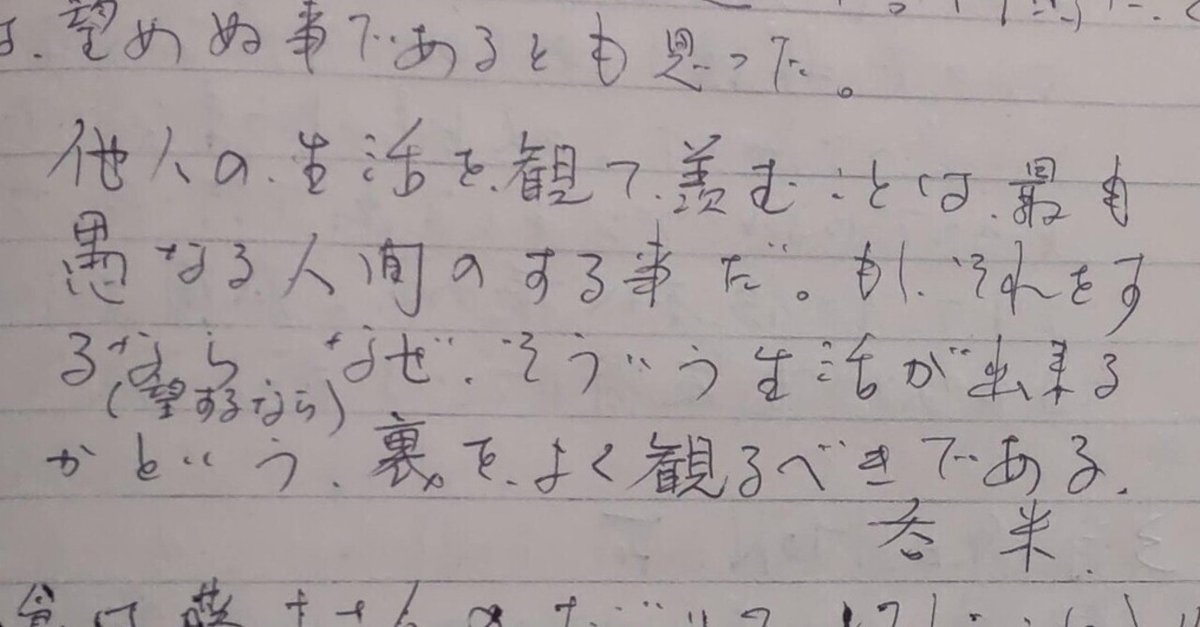 望めぬ事であるとも思った。
他人の生活を観て羨むことは、最も
愚なる人間のする事だ。もし、それをす
るなら なぜ、そういう生活が出来る
(望するなら)
かという、裏を、よく観るべきである。
呑米